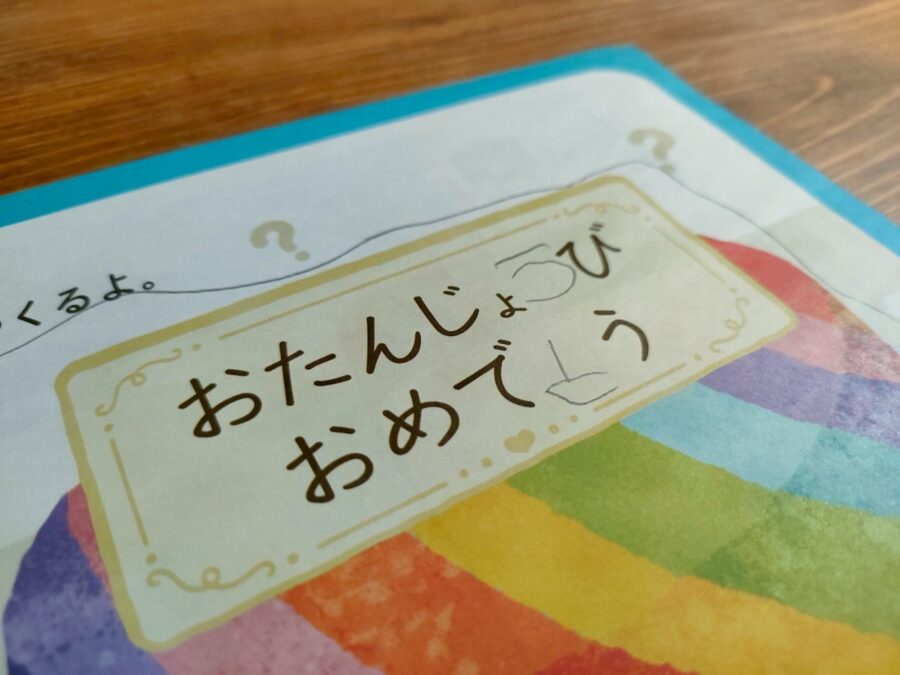 くるよ。
?
?
おたんじょうび
おめでとう